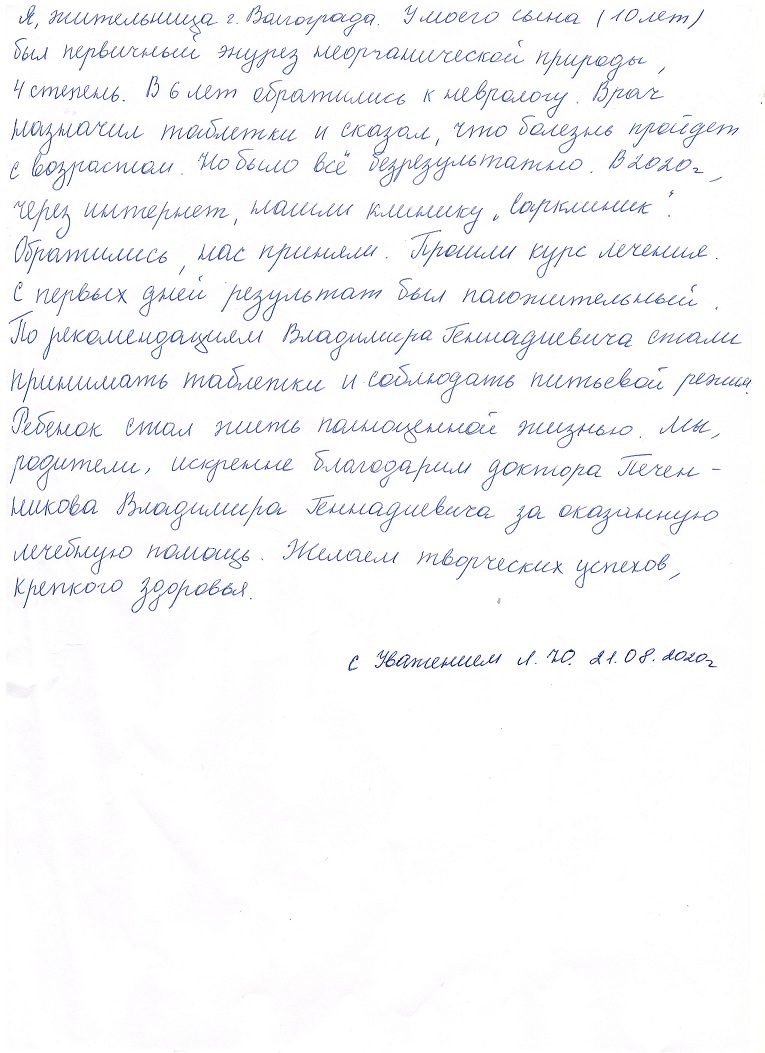 Я, жительница г. Волгограда. У моего сына (10 лет)
был первичный энурез неорганической природы,
4 степень. В 6 лет обратились к неврологу. Врач
назначил таблетки и сказал, что болезнь пройдет
с возрастом. Но было всё безрезультатно. В 2020г,
через интернет, нашли клинику „Сарклиник“.
Обратились, нас приняли. Прошли курс лечения.
С первых дней результат был положительный.
По рекомендациям Владимира Геннадиевича стали
принимать таблетки и соблюдать питьевой режим.
Ребенок стал жить полноценной жизнью. Мы,
родители, искренне благодарим доктора Печен-
никова Владимира Геннадиевича за оказанную
лечебную помощь. Желаем творческих успехов,
крепкого здоровья.
с Уважением Л. Ю. 21.08.2020г